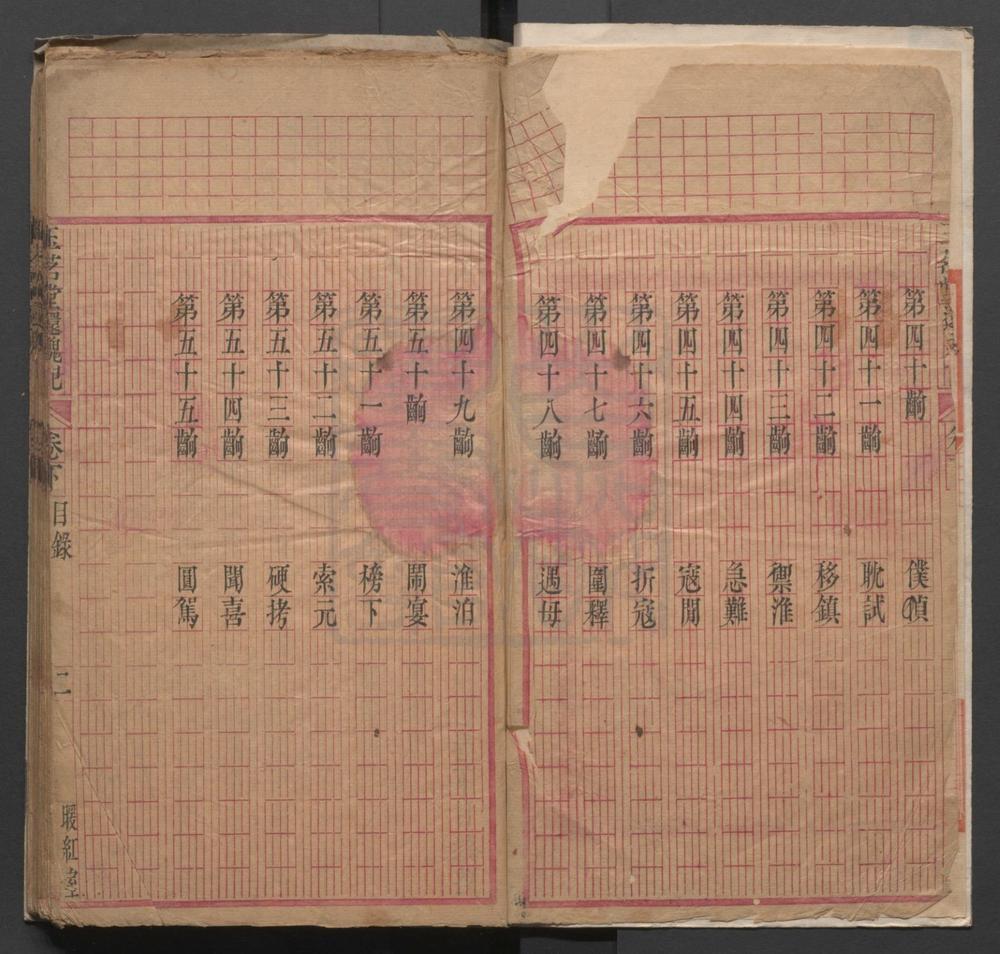 第四十齣　僕偵
第四十一齣　耽試
第四十二齣　移鎮
第四十三齣　禦淮
第四十四齣　急難
第四十五齣　寇閒
第四十六齣　折寇
第四十七齣　圍釋
第四十八齣　遇母
第四十九齣　淮泊
第五十齣　鬧宴
第五十一齣　榜下
第五十二齣　索元
第五十三齣　硬拷
第五十四齣　聞喜
第五十五齣　圓駕
玉茗堂還魂記　卷下　目錄　二　暖紅室